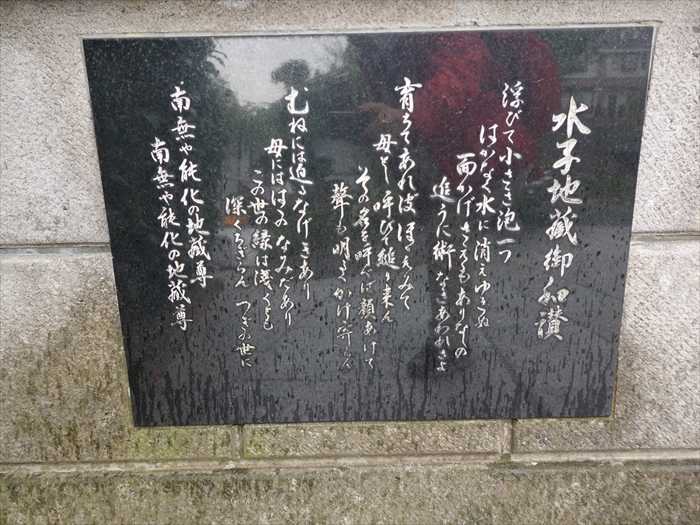 水子地蔵御和讃
浮びて小さき泡一つ
はかなく水に消えゆきぬ
面かげさえもありなしの
追うに術なきあわれさよ
育ちてあればほゝえみて
母よと呼びて縋り来ん
その名を呼べば顔あげて
聲も明るくかけ寄らん
むねには迫るなげきあり
母にはほそなみだあり
この世の縁は浅くとも
深くちぎらんつぎの世に
南無や能化の地蔵尊
南無や能化の地蔵尊